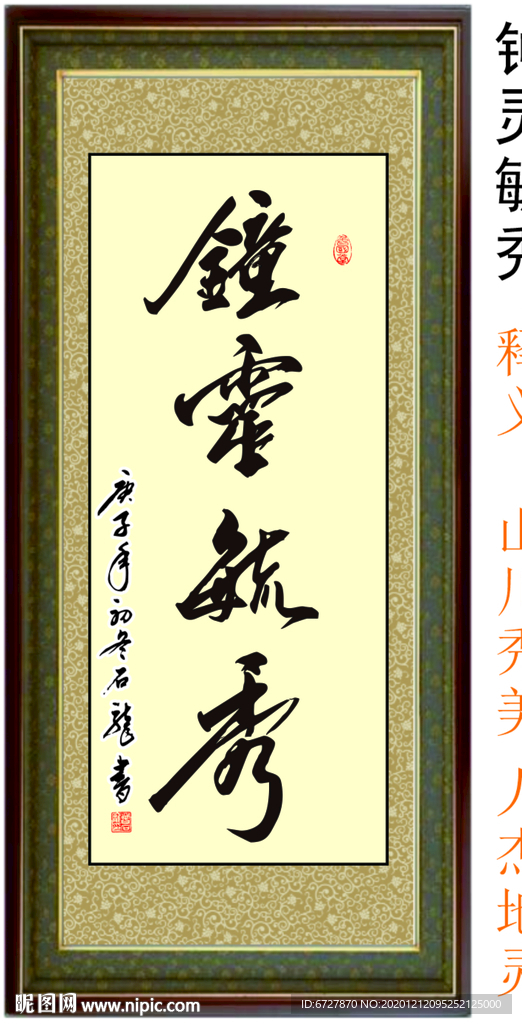 鐘靈毓秀
庚子年初冬石龍書
钟灵敏秀
释义
山川秀美 人杰地灵
昵图网 www.nipic.com
ID:6727870 NO:20201212095252125000